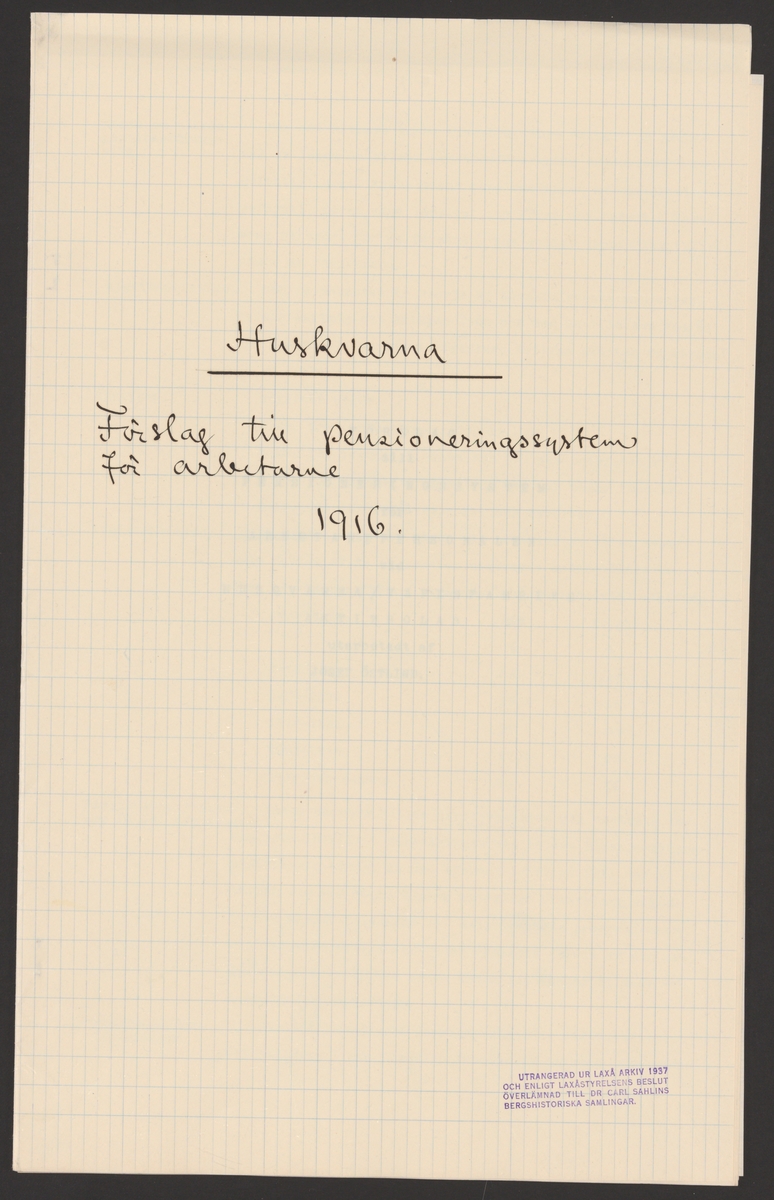 Huskvarna
Förslag till pensioneringssystem
för arbetarne
1916.
UTRANGERAD UR LAXÅ ARKIV 1937
OCH ENLIGT LAXÅSTYRELSENS BESLUT
ÖVERLÄMNAD TILL DR CARL SAHLINS
BERGSHISTORISKA SAMLINGAR.